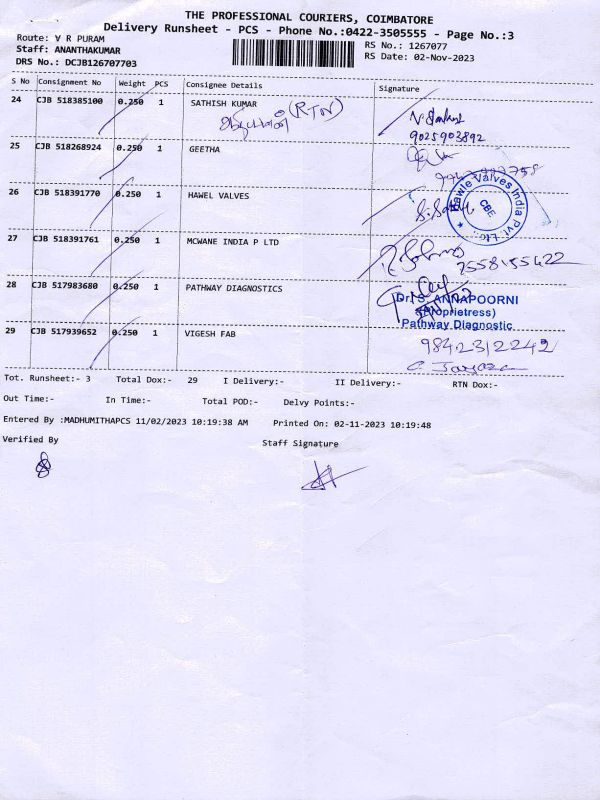 THE PROFESSIONAL COURIERS, COIMBATORE
Delivery Runsheet - PCS - Phone No.:0422-3505555 - Page No.:3
Route: V R PURAM
RS No.: 1267077
Staff: ANANTHAKUMAR
RS Date: 02-Nov-2023
DRS No.: DCJB126707703
S No Consignment No Weight PCS Consignee Details Signature
24 CJB 518385100 0.250 1 SATHISH KUMAR
(RTN)
9025903892
25 CJB 518268924 0.250 1 GEETHA
26 CJB 518391770 0.250 1 HAWEL VALVES
Hawle Valves India Pvt. Ltd.
CBE
27 CJB 518391761 0.250 1 MCWANE INDIA P LTD
7558155422
28 CJB 517983680 0.250 1 PATHWAY DIAGNOSTICS
Dr. S. ANNAPOORNI
(Proprietress)
Pathway Diagnostic
29 CJB 517939652 0.250 1 VIGESH FAB
9842312242
Tot. Runsheet:- 3 Total Dox:- 29 I Delivery:- II Delivery:- RTN Dox:-
Out Time:- In Time:- Total POD:- Delvy Points:-
Entered By :MADHUMITHAPCS 11/02/2023 10:19:38 AM Printed On: 02-11-2023 10:19:48
Verified By Staff Signature